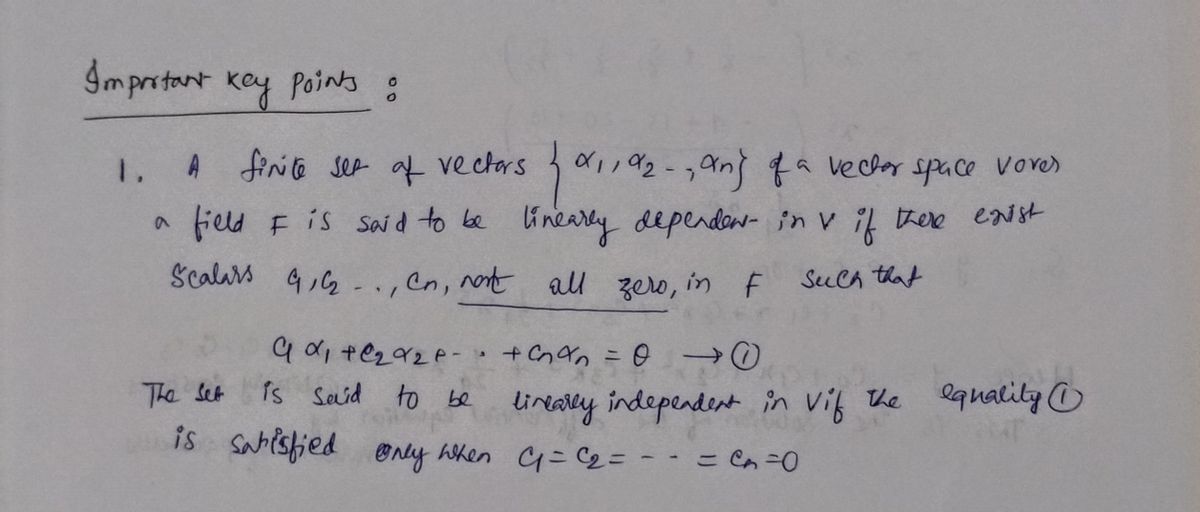 Important key points :
1. A finite set of vectors {α₁, α₂ -, αn} of a vector space V over
a field F is said to be linearly dependent in V if there exist
Scalars c₁, c₂ - . . , cn, not all zero, in F such that
c₁ α₁ + c₂ α₂ + - . . + cn αn = θ → ①
The set is said to be linearly independent in V if the equality ①
is satisfied only when c₁ = c₂ = - - - = cn = 0